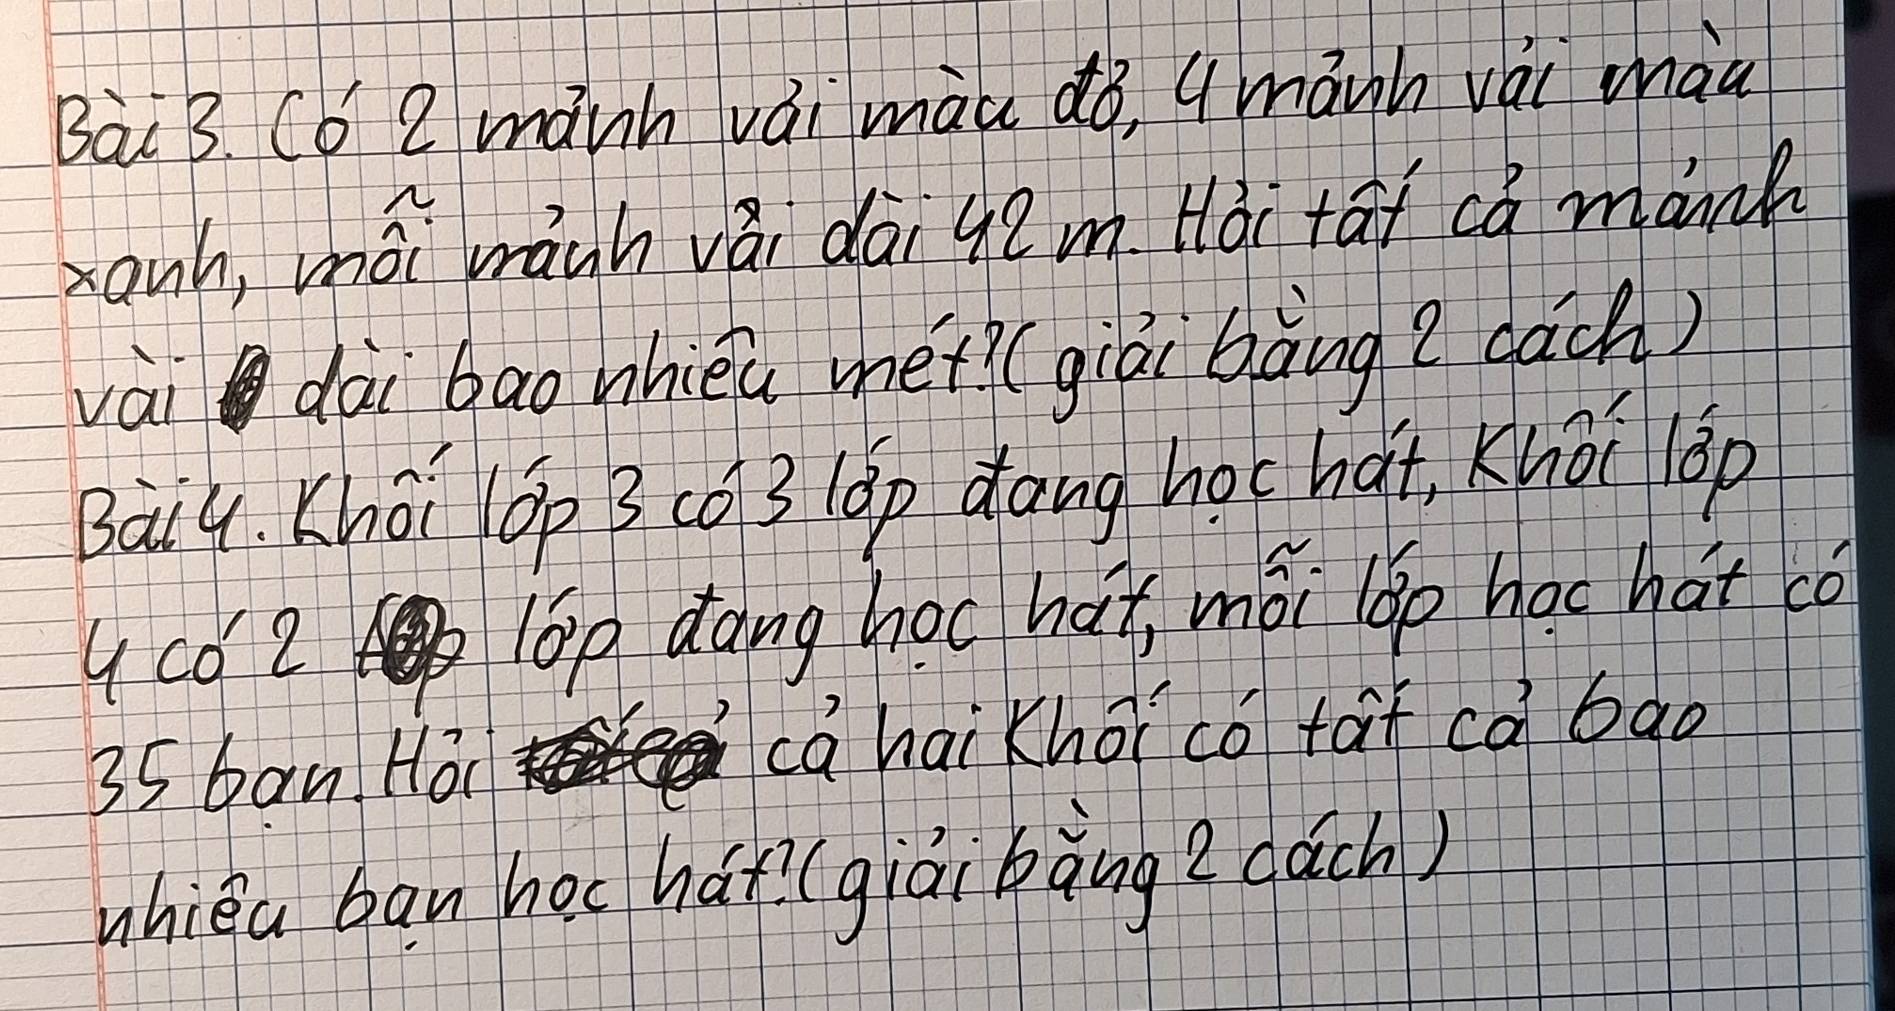 Bài 3. Có 2 mảnh vải màu đỏ, 4 mảnh vải màu
xanh, mỗi mảnh vải dài 42 m. Hỏi tất cả mảnh
vải dài bao nhiêu mét? (giải bằng 2 cách)
Bài 4. Khối lớp 3 có 3 lớp đang học hát, Khối lớp
4 có 2 lớp đang học hát, mỗi lớp học hát có
35 bạn. Hỏi cả hai Khối có tất cả bao
nhiêu bạn học hát? (giải bằng 2 cách)